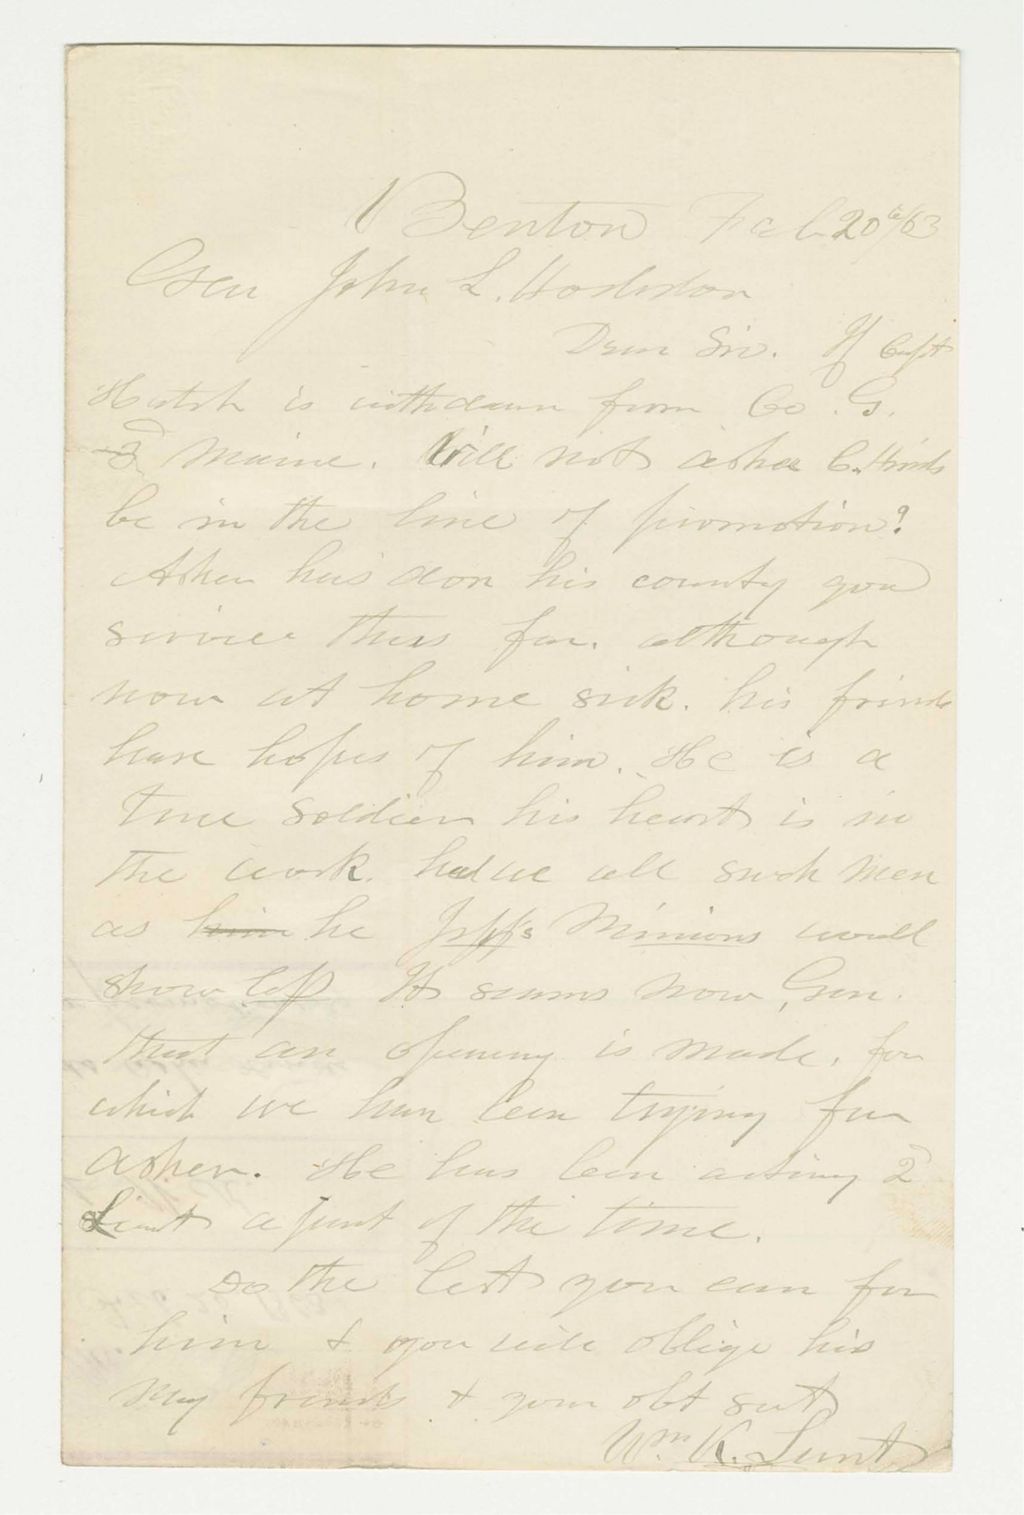 Benton Feb 20th/63
Gen John L. Hodsdon
Dear Sir. If Capt
Hatch is withdrawn from Co. G.
3d Maine. Will not Asher C. Hinds
be in the line of promotion?
Asher has don his county good
service thus far. although
now at home sick. his friends
have hopes of him. He is a
true soldier his heart is in
the work. had we all such men
as him he Jeff's Minions would
show less It seams now, Gen.
that an opening is made, for
which we have been trying for
Asher. He has been acting 2d
Lieut a part of the time.
Do the best you can for
him & you will oblige his
my friends & your obt svt
Wm K. Lunt